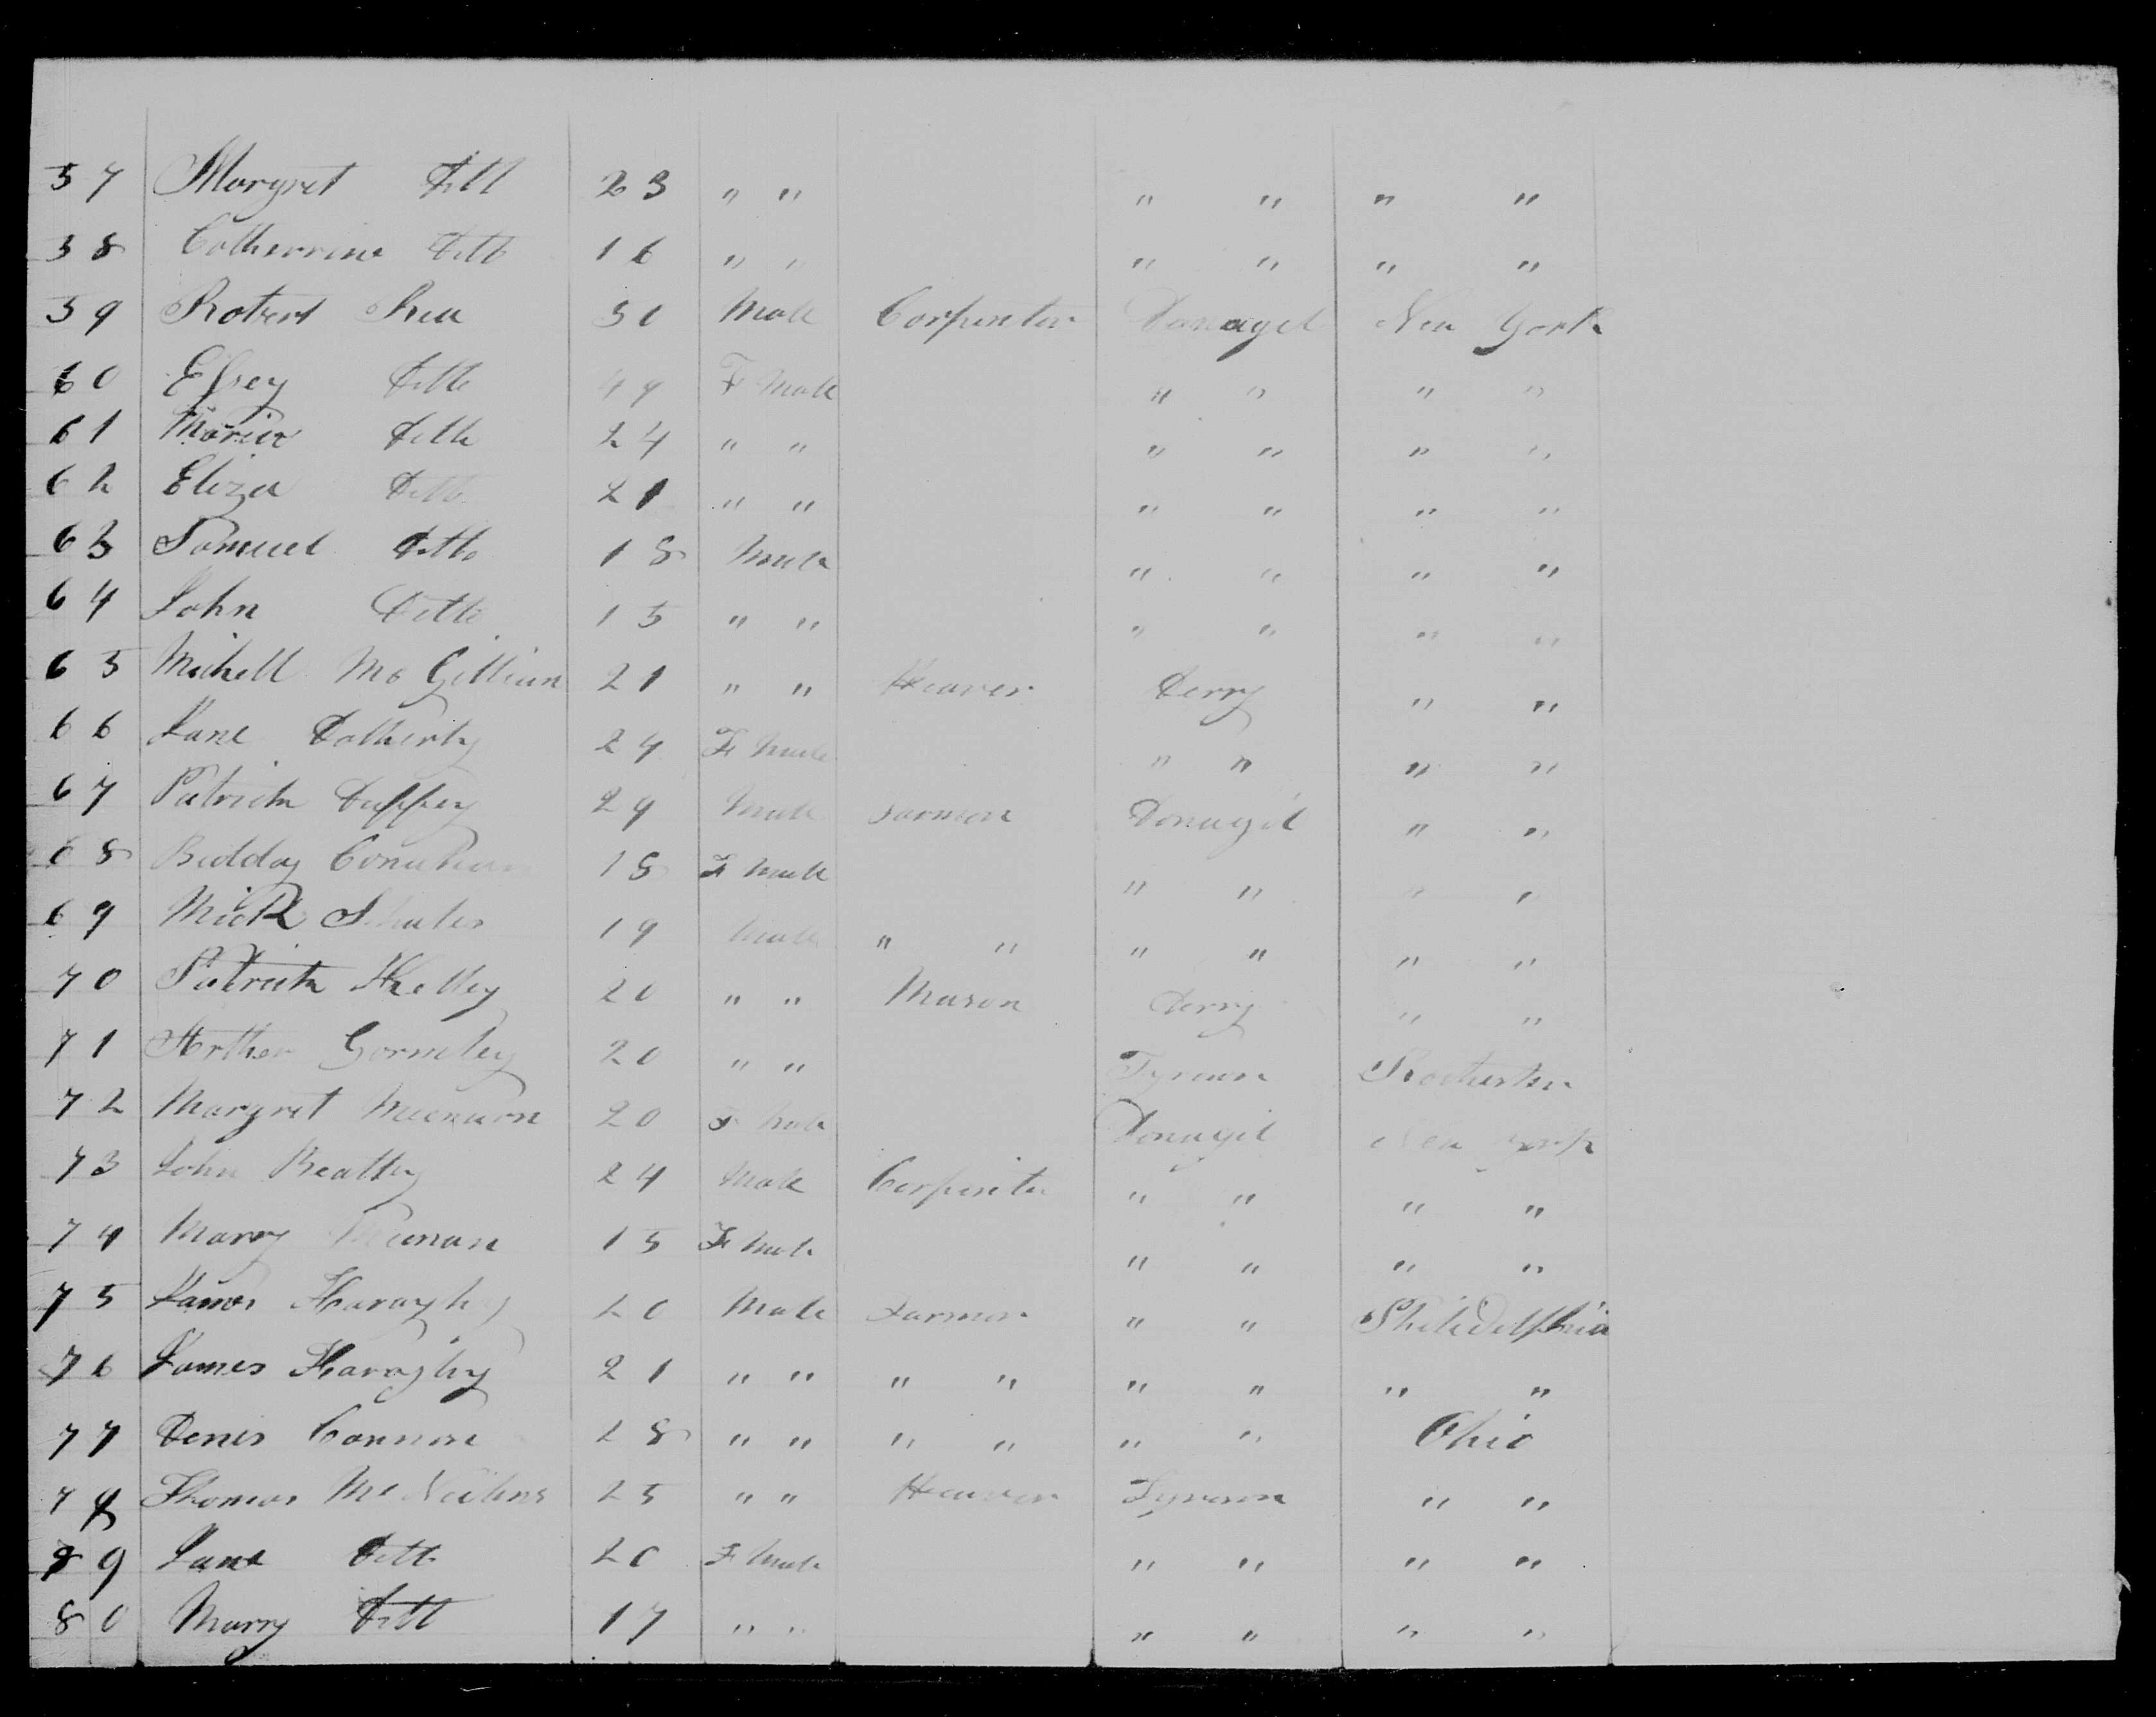 57 Morgret Ditto 23 " " " " " "
58 Catherrine Ditto 16 " " " " " "
59 Robert Rea 50 Male Carpenter Donagel New York
60 Essey Ditto 49 F Male " " " "
61 Maria Ditto 24 " " " " " "
62 Eliza Ditto 21 " " " " " "
63 Samuel Ditto 18 Male " " " "
64 John Ditto 15 " " " " " "
65 Michell Mc Gillian 21 " " Weaver Derry " "
66 Jane Dotherty 24 F Male " " " "
67 Patrick Duffey 29 Male Farmer Donagel " "
68 Bidday Conahan 18 F Male " " " "
69 Mick 19 Male " " " " " "
70 Patrick Kelley 20 " " Mason Derry " "
71 Arther Gormley 20 " " Tyroun Rochester
72 Margret 20 F Male Donagel New York
73 John Beattey 24 Male Carpenter " " " "
74 Marry 15 F Male " " " "
75 James Haraghy 20 Male Farmer " " Philidelphia
76 James Haraghy 21 " " " " " " " "
77 Denis Cannon 28 " " " " " " Ohio
78 Thomas Mc 25 " " Weaver Tyroun " "
89 Jane Ditto 20 F Male " " " "
80 Marry Ditto 17 " " " " " "